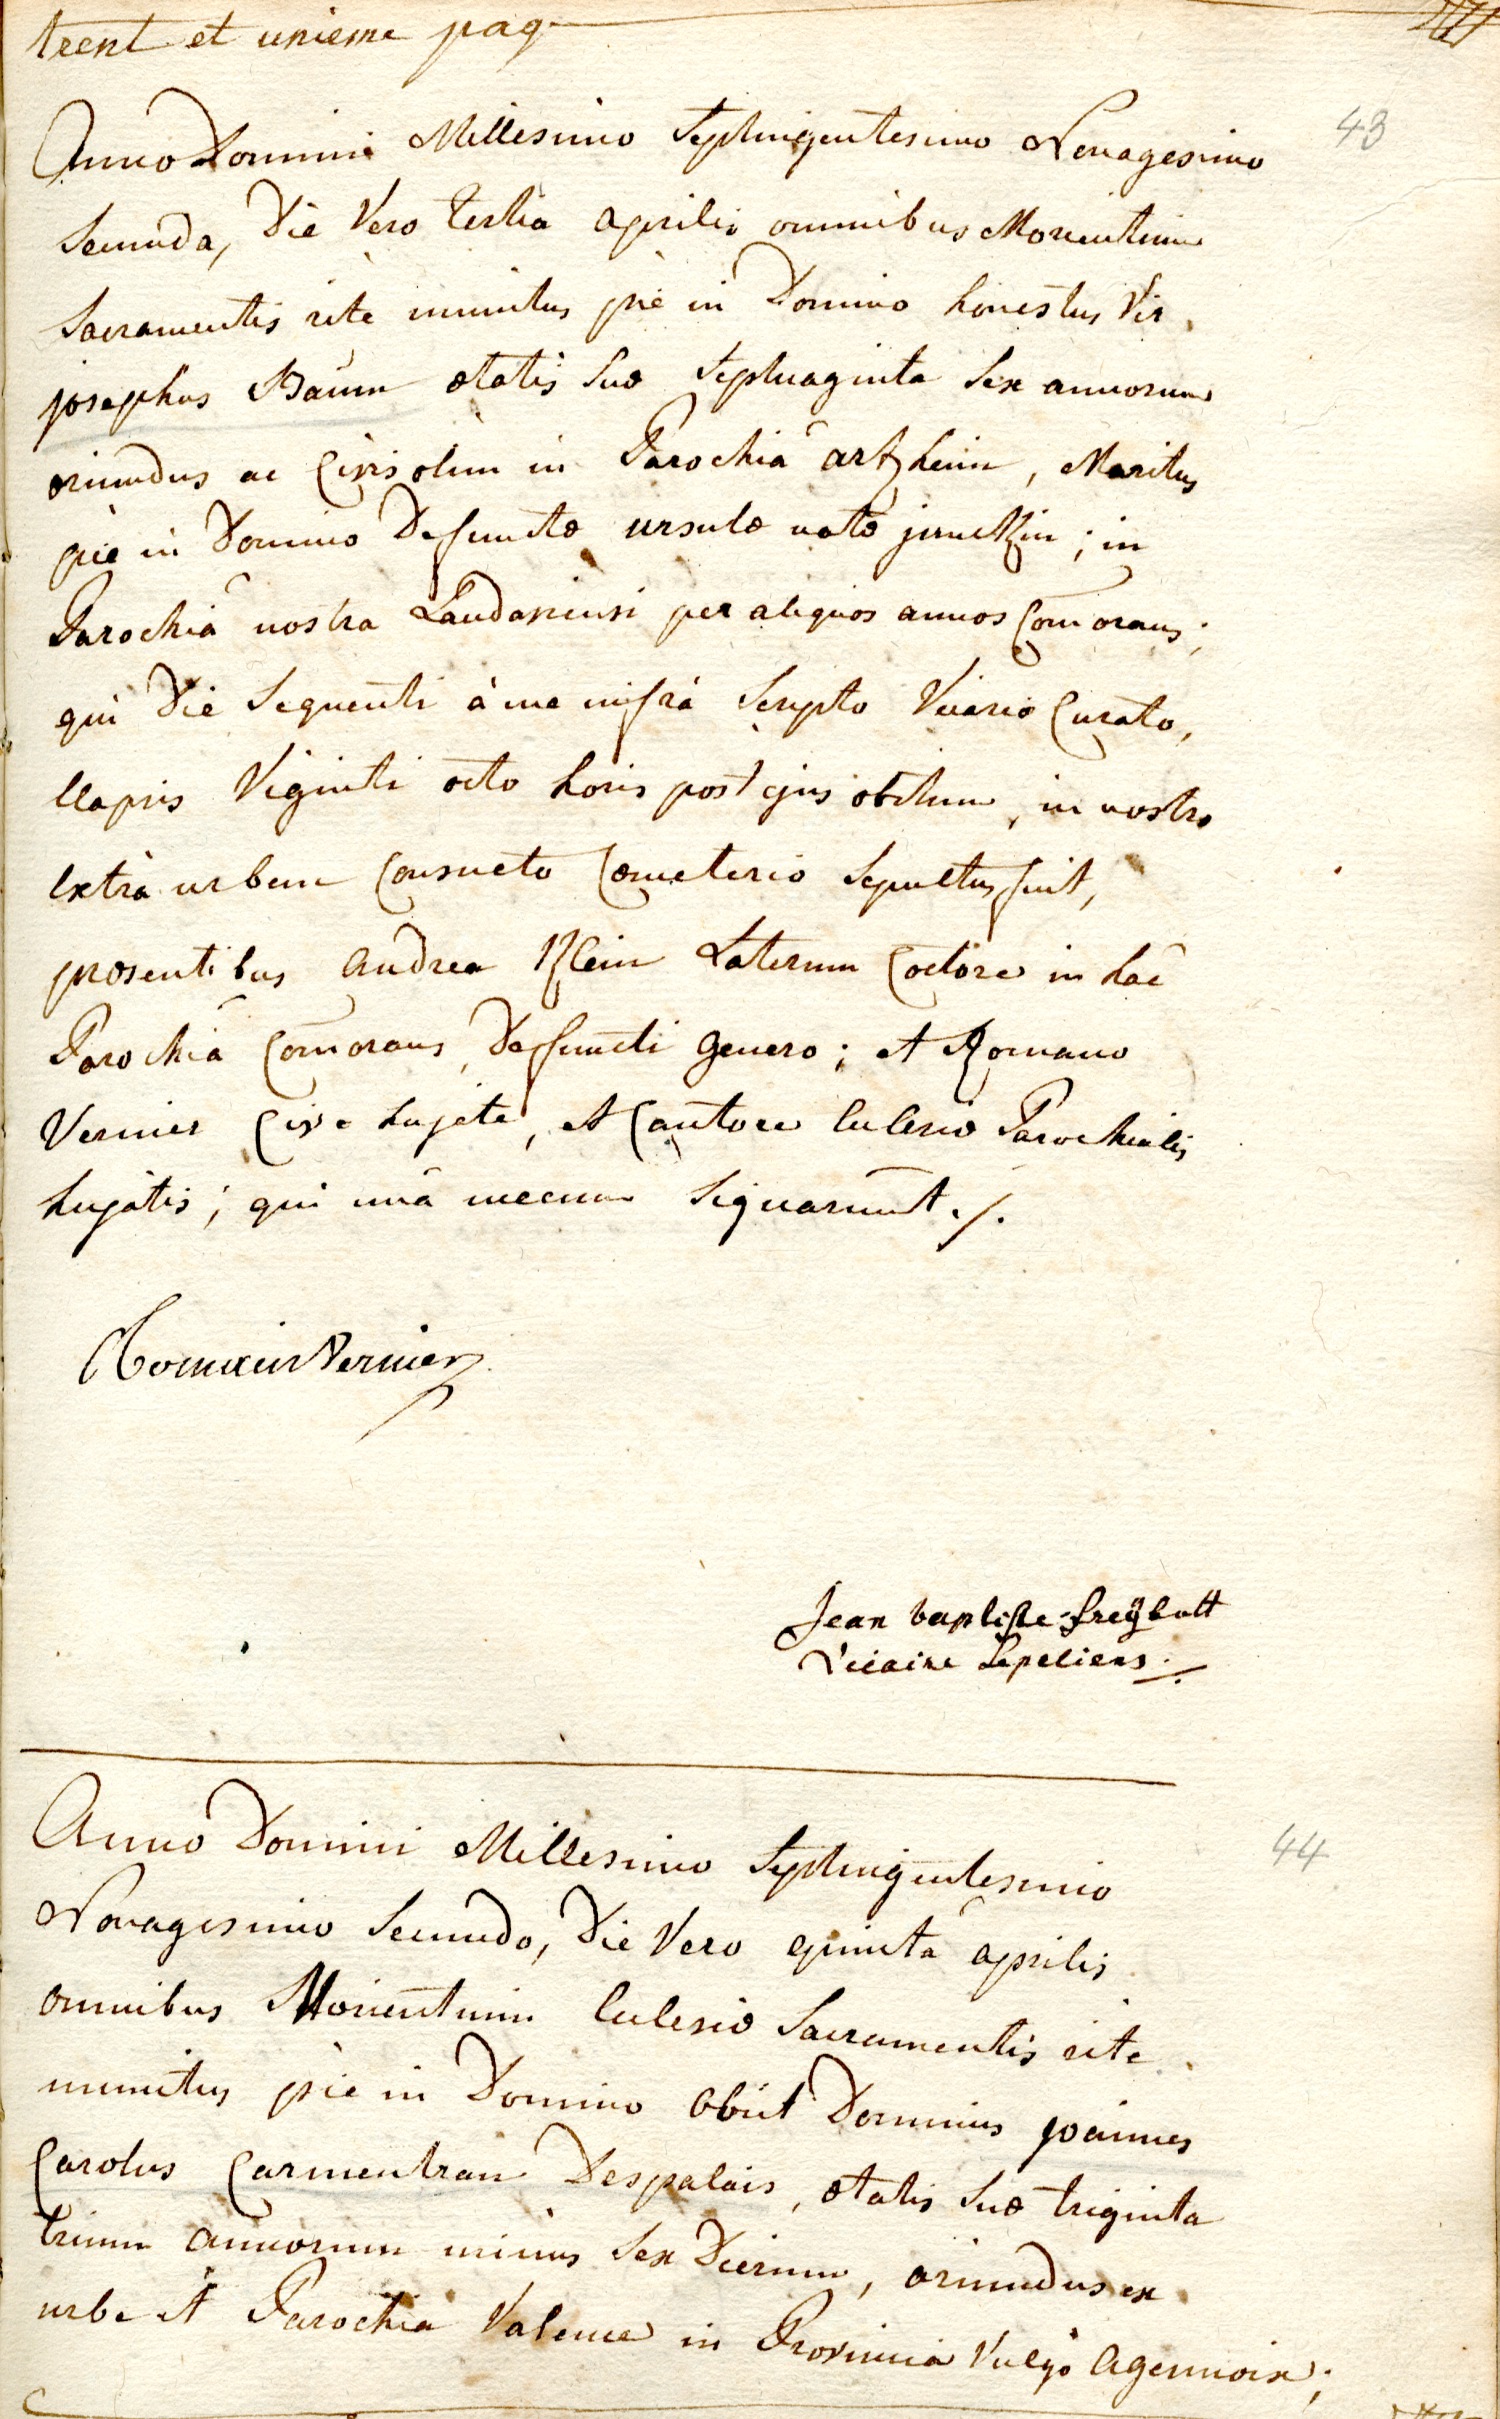 trent et unieme pag.
43
Anno Domini Millesimo Septingentesimo Nonagesimo
Secunda, Die Vero tertia aprilis omnibus Morientium
Sacramentis rite munitus piè in Domino honestus Vir
josephus Baum ætatis Suæ Septuaginta Sex annorum
oriundus ac Civis olim in Parochiâ artzheim, Maritus
piè in Domino Defunctæ ursulæ natæ ; in
Parochiâ nostra Landaviensi per aliquos annos Comorans;
qui Die Sequenti à me infrà Scripto Vicario Curato,
Elapsis Viginti octo horis post ejus obitum, in nostro
Extrà urbem Consueto Cœmeterio Sepultus fuit,
præsentibus Andrea Klein Laterum Coctore in hac
Parochiâ Comorans, Defuncti Genero; et Romano
Vernier Cive hujate, et Cantore Eclesiæ Parochialis
hujatis; qui unâ mecum Signarunt ./.
Romain Vernier
Jean baptiste freÿbott
Vicaire Sepeliens ./.
44
Anno Domini Millesimo Septingentesimo
Nonagesimo Secundo, Die Vero quinta aprilis
omnibus Morientium Eclesiæ Sacramentis rite
munitus piè in Domino Obiit Dominus joannes
Carolus Carmentran Despalais, ætatis Suæ triginta
trium annorum minus Sex Dierum, oriundus ex
urbe et Parochia Valence in Provinciâ Vulgo Agennoix;